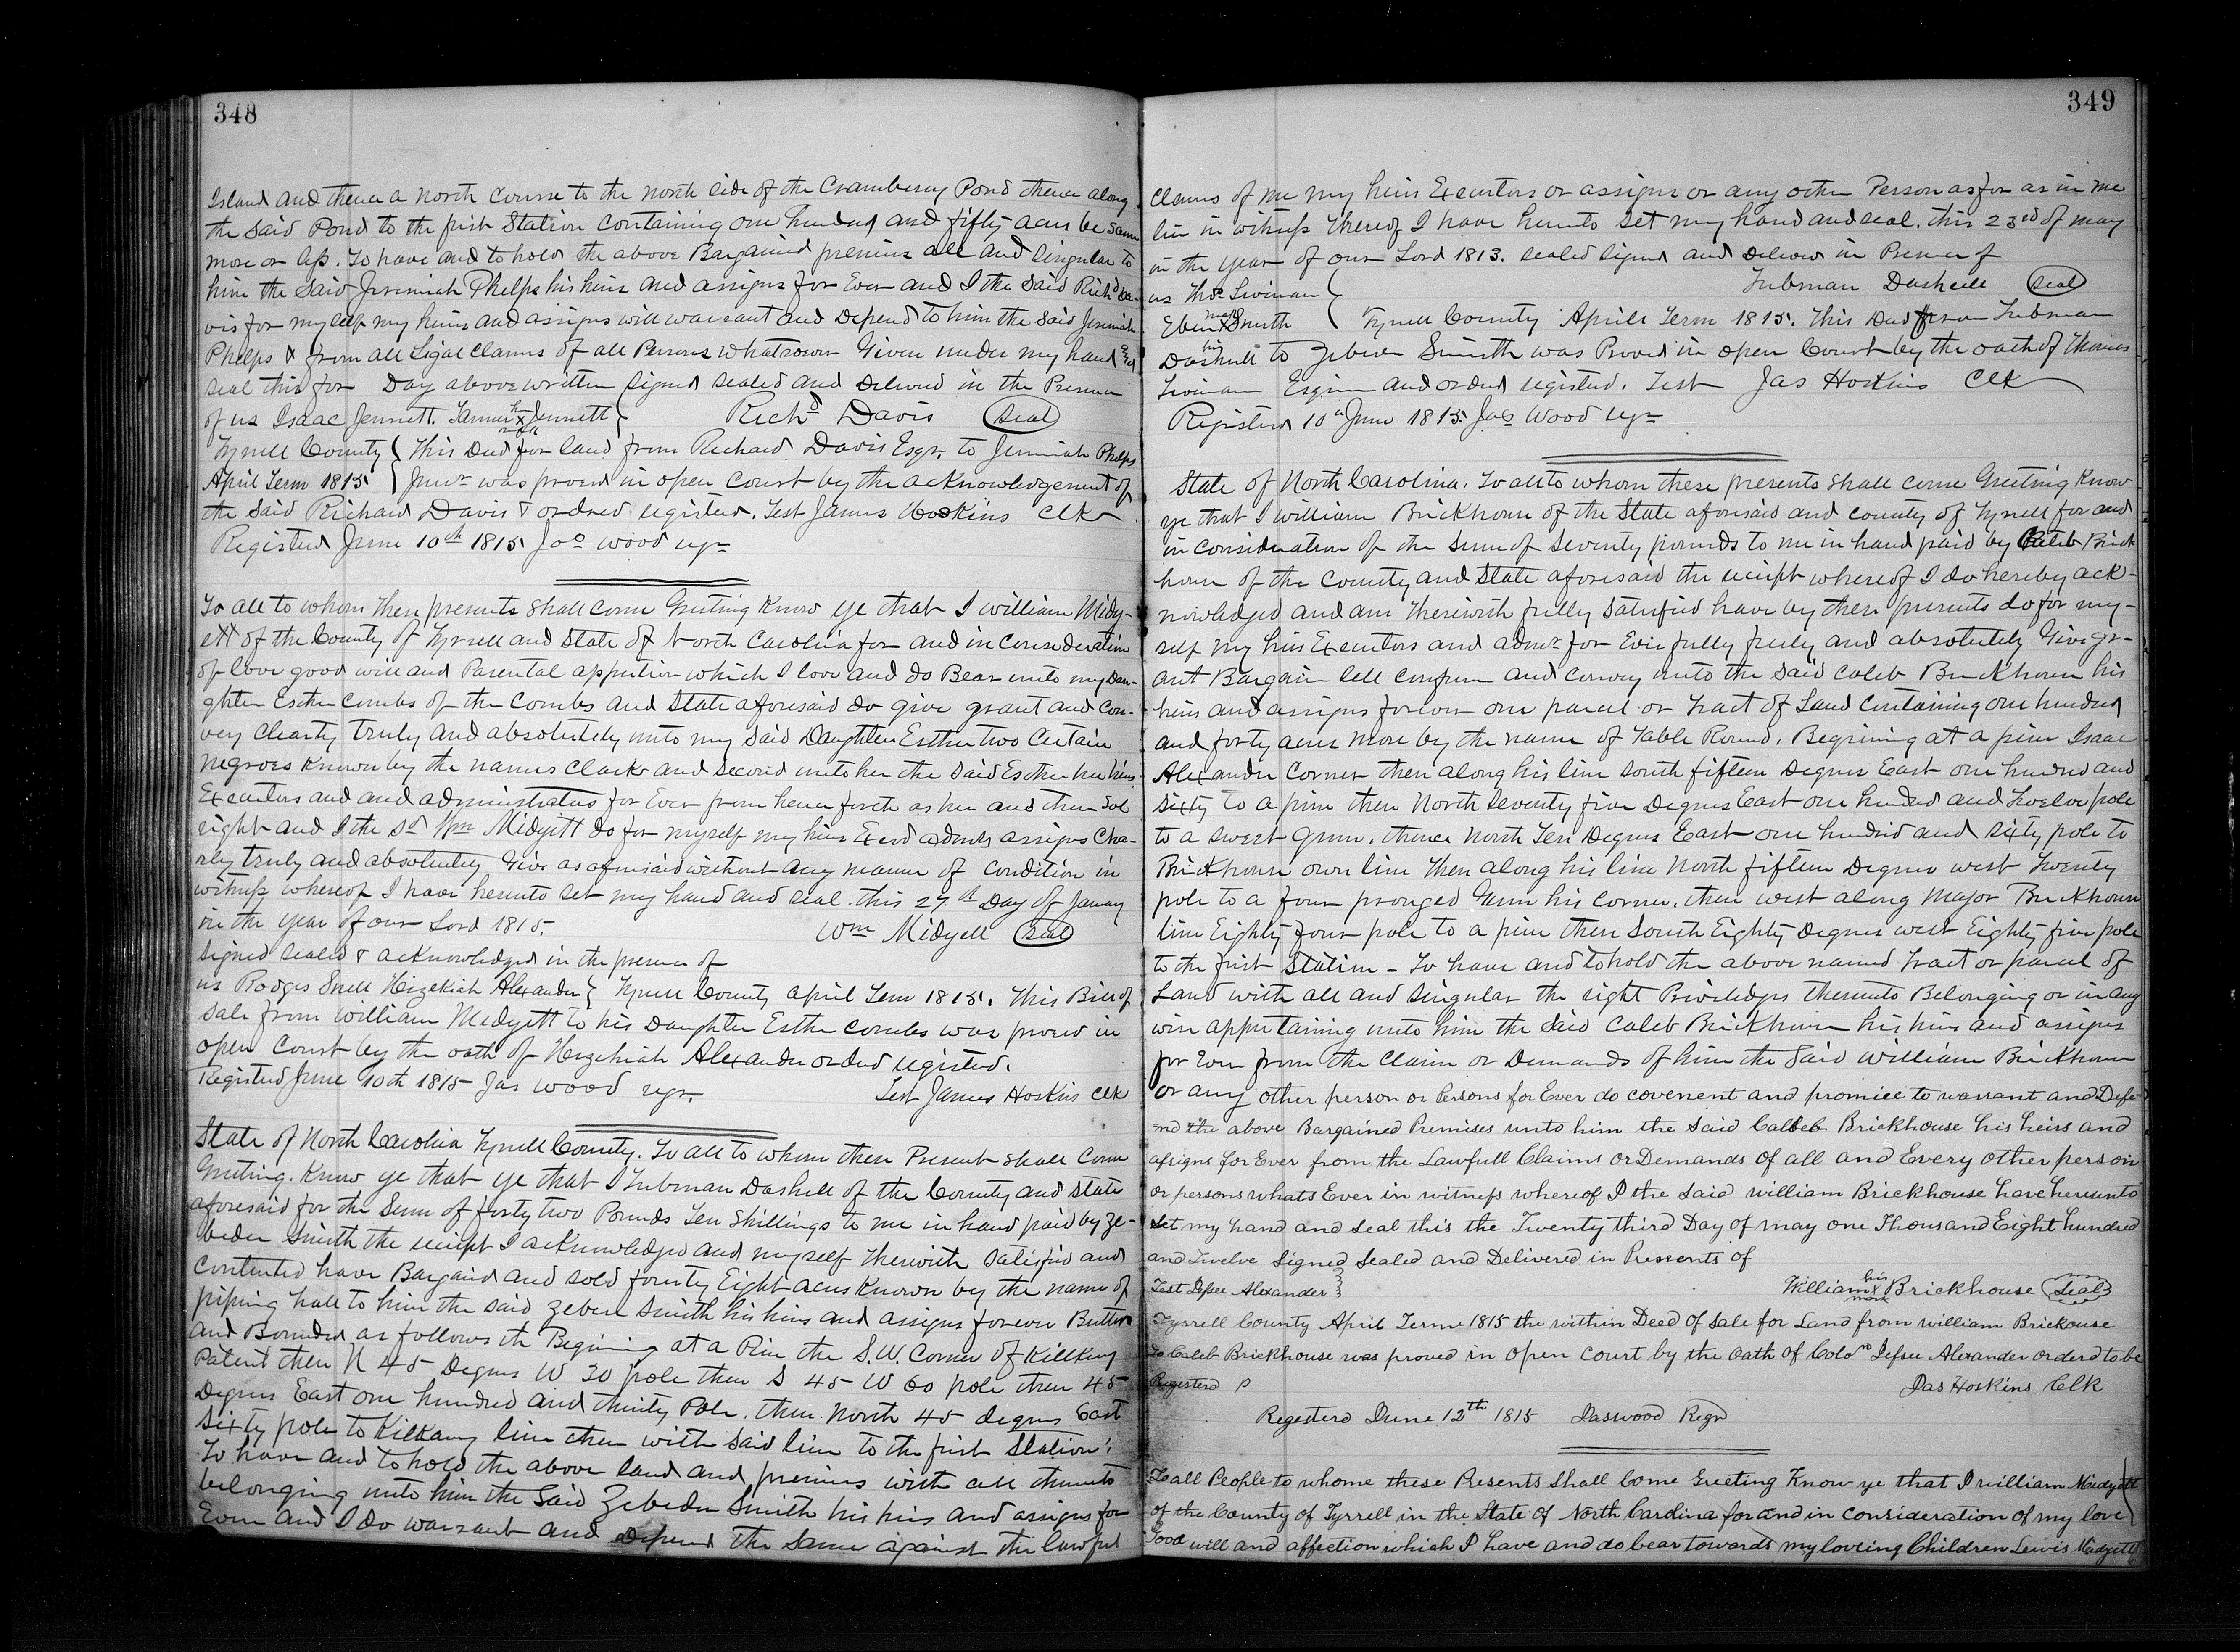 348
Island and thence a North Course to the north side of the Cramberry Pond thence along
the said Pond to the first Station Containing one hundred and fifty acres be same
more or less. To have and to hold the above Bargained premises all and singular to
him the Said Jeremiah Phelps his heirs and assigns for Ever and I the Said Richd Da-
vis for myself my heirs and assigns will warrant and Defend to him the Said Jeremiah
Phelps & from all Legal Claims of all Persons Whatsoever Given under my hand and
seal this for Day above written signed sealed and Delivered in the Presence
of us Isaac Jennett. Jennett Richd Davis Seal
Tyrrell County This Deed for land from Richard Davis Esqr. to Jeremiah Phelps
April Term 1815 Junr was proved in open Court by the acknowledgement of
the said Richard Davis & ordered registered. Test James Hoskins Clk
Registered June 10th 1815 Jas Wood regr
To all to whom these presents shall come Greeting Know ye that I William Midy-
ett of the County of Tyrrell and State of North Carolina for and in Consideration
of love good will and Parental affection which I love and do Bear unto my Dau-
ghter Esther Combs of the Combs and State aforesaid do give grant and Con-
vey Clearly truly and absolutely unto my said Daughter Esther two Certain
negroes Known by the names Clark and Second unto her the said Esther her heirs
Executors and and administrators for Ever from hence forth as her and their Sol
right and I the sd Wm Midyett do for myself my heirs Exed admds assigns Clea-
rly truly and absolutely Give as aforesaid without any manner of Condition in
witness whereof I have hereunto set my hand and seal this 27th Day of January
in the year of our Lord 1815. Wm Midyett Seal
Signed sealed & acknowledged in the presence of
us Rodges Snell Hezekiah Alexander Tyrrell County april Term 1815. This Bill of
sale from William Midyett to his Daughter Esther Combs was proved in
open Court by the oath of Hezekiah Alexander orderd registerd.
Registerd June 10th 1815 Jas Wood regr. Test James Hoskins Clk
State of North Carolina Tyrrell County. To all to whom these Present shall Come
Greeting. Know ye that ye that I Tubman Dashell of the County and State
aforesaid for the Sum of forty two Pounds Ten Shillings to me in hand paid by Ze-
beden Smith the receipt I acknowledged and myself therewith Satisfied and
Contented have Bargaind and sold fourty Eight acres Known by the name of
piping hall to him the said Zeben Smith his heirs and assigns forever Butted
and Bounded as follows th Begining at a Pine the S.W. Corner of Killkeny
Patent then N 45 Degres W 30 pole then S 45 W 60 pole then 45
Degres East one hundred and thirty Pole. then North 45 degres East
sixty pole to Kilkany line then with said line to the first Station.
To have and to hold the above land and premises with all thereunto
belonging unto him the Said Zebeden Smith his heirs and assigns for
Ever and I do warrant and Defend the Same against the lawful
349
claims of me my heirs Executors or assigns or any other Person as far as in me
lies in witness thereof I have hereunto Set my hand and seal. this 23rd of may
in the year of our Lord 1813. sealed signed and Deliverd in Presence of
us Thos Liverman Tubman Dasheill Seal
Eben X Smith Tyrrell County Aprile Term 1815. This Deed from Tubman
Dashell to Zebeden Smith was Proved in open Court by the oath of Thomas
Liverman Esqire and orderd registered. Test Jas Hoskins Clk
Registerd 10th June 1815 Jas Wood regr
State of North Carolina. To all to whom these presents shall come Greeting Know
ye that I William Brickhouse of the State aforesaid and county of Tyrrell for and
in Consideration of the Sum of Seventy pounds to me in hand paid by Caleb Brick
house of the County and State aforesaid the receipt whereof I do hereby ack-
nowledged and am therewith fully Satisfied have by these presents do for my-
self my heirs Executors and admrs for Ever fully freely and absolutely Give gr-
ant Bargain sell confirm and Convey unto the Said Caleb Brickhouse his
heirs and assigns forever one parcel or tract of Land Containing one hundred
and forty acres more by the name of Table Round. Begining at a pine Isaac
Alexander Corner then along his line south fifteen Degrees East one hundred and
sixty to a pine then North Seventy five Degrees East one hundred and twelve pole
to a sweet gum. thence north Ten Degrees East one hundred and sixty pole to
Brickhouse own line then along his line North fifteen Degrees west twenty
pole to a four pronged Gum his corner. then west along Major Brickhouse
line Eighty four pole to a pine then South Eighty Degrees west Eighty five pole
to the first Station - To have and to hold the above named tract or parcel of
Land with all and Singular the right Priviledges thereunto Belonging or in any
wise appertaining unto him the Said Caleb Brickhouse his heirs and assigns
for Ever from the Claim or Demands of him the Said William Brickhouse
or any other person or Persons for Ever do covenent and promice to warrant and Defe
nd the above Bargained Premises unto him the said Calleb Brickhouse his heirs and
assigns for Ever from the Lawfull Claims or Demands of all and Every other person
or persons whats Ever in witness whereof I the said william Brickhouse have hereunto
set my hand and seal this the Twenty third Day of may one Thousand Eight hundred
and Twelve Signed Sealed and Delivered in Presents of
Test Jefsee Alexander William his X mark Brickhouse Seal
Tyrrell County April Terme 1815 the within Deed of sale for Land from william Brickouse
To Caleb Brickhouse was proved in open court by the oath of Colo Jefsee Alexander orderd to be
Registerd Jas Hoskins Clk
Registerd June 12th 1815 Jas wood Regr
To all People to whome these Presents shall come Greeting Know ye that I william Midyett
of the County of Tyrrell in the State of North Carolina for and in consideration of my love
Good will and affection which I have and do bear towards my loveing Children Lewis Midyett